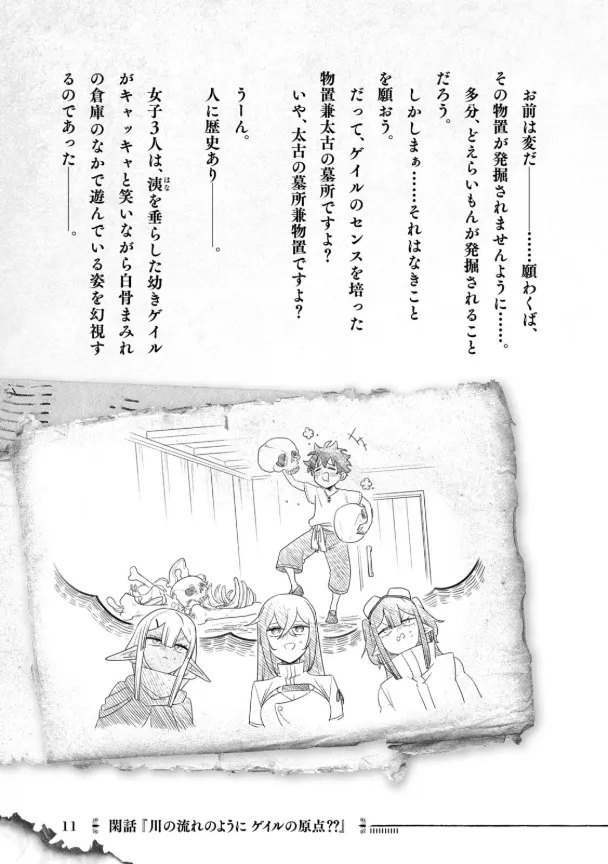 お前は変だ――――……願わくば、
その物置が発掘されませんように……。
多分、どえらいもんが発掘されること
だろう。
しかしまぁ……それはなきこと
を願おう。
だって、ゲイルのセンスを培った
物置兼太古の墓所ですよ？
いや、太古の墓所兼物置ですよ？
うーん。
人に歴史あり――――。
女子３人は、洟を垂らした幼きゲイル
はな
がキャッキャと笑いながら白骨まみれ
の倉庫のなかで遊んでいる姿を幻視す
るのであった――――。
11 閑話『川の流れのように ゲイルの原点??』